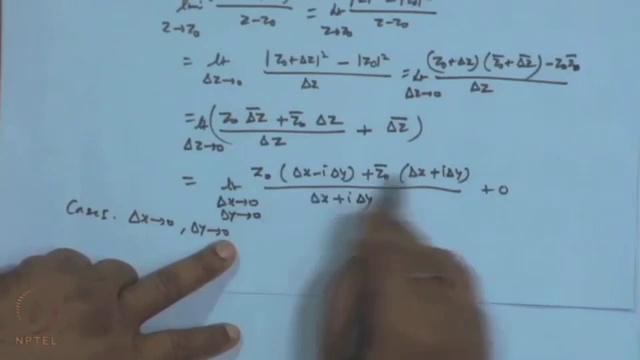 lim / z→z₀ / z-z₀ = lt z→z₀ / z-z₀
= lt Δz→0 |z₀+Δz|² - |z₀|² / Δz = lt Δz→0 (z₀+Δz)(z̄₀+Δ̅z̅) - z₀z̄₀ / Δz
= lt Δz→0 ( z₀ Δ̅z̅ + z̄₀ Δz / Δz + Δ̅z̅ )
= lt Δx→0 Δy→0 z₀ (Δx-iΔy) + z̄₀ (Δx+iΔy) / Δx+iΔy + 0
Case I. Δx→0, Δy→0
NPTEL